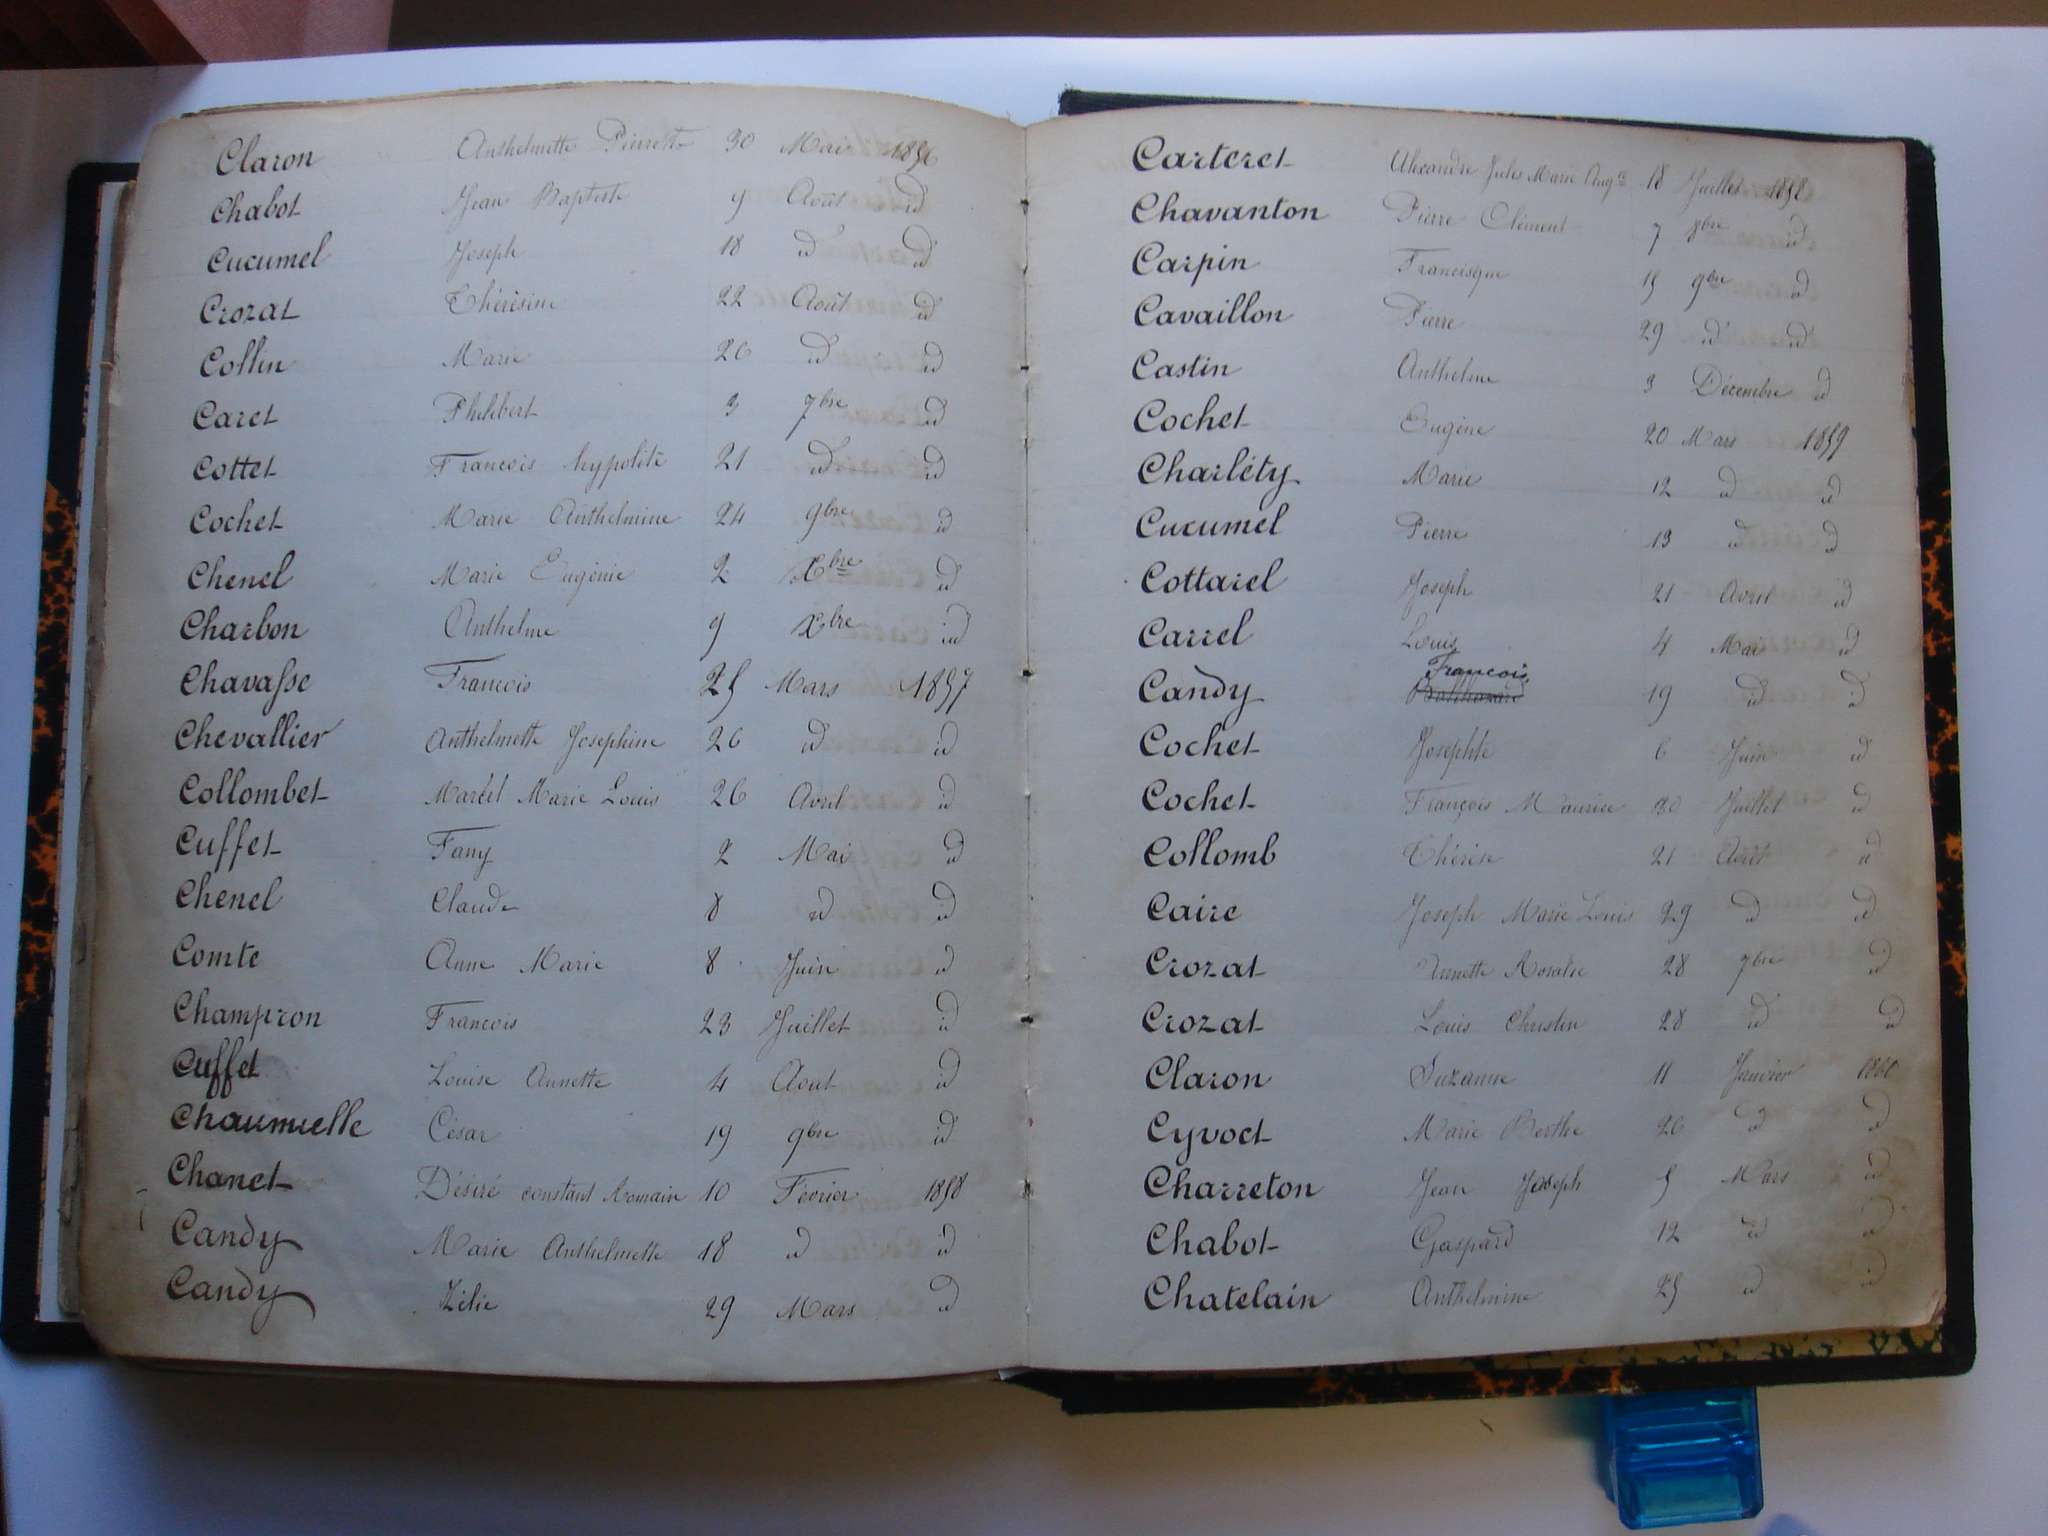 Claron Anthelmette Pierrette 30 Mai 1856
Chabot Jean Baptiste 9 Août id
Cucumel Joseph 18 id id
Crozat Thérèsine 22 Août id
Collin Marie 26 id id
Caret Philibert 3 7bre id
Cottet Francois hypolite 21 id id
Cochet Marie Anthelmine 24 9bre id
Chenel Marie Eugénie 2 Xbre id
Charbon Anthelme 9 Xbre id
Chavasse Francois 25 Mars 1857
Chevallier Anthelmette Josephine 26 id id
Collombet Marcel Marie Louis 26 Avril id
Cuffet Fany 2 Mai id
Chenel Claude 8 id id
Comte Anne Marie 8 Juin id
Champron Francois 23 Juillet id
Cuffet Louise Annette 4 Aout id
Chaumuelle César 19 9bre id
Chanet Désiré constant Romain 10 Février 1858
Candy Marie Anthelmette 18 id id
Candy Zélie 29 Mars id
Carteret Alexandre Jules Marie Aug 18 Juillet 1858
Chavanton Pierre Clément 7 8bre id
Carpin Francisque 15 9bre id
Cavaillon Pierre 29 id id
Castin Anthelme 3 Décembre id
Cochet Eugène 20 Mars 1859
Charléty Marie 12 id id
Cucumel Pierre 13 id id
Cottarel Joseph 21 Avril id
Carrel Louis 4 Mai id
Francois
Candy Balthazard 19 id id
Cochet Josephte 6 Juin id
Cochet François Maurice 30 Juillet id
Collomb Thérèse 21 Août id
Caire Joseph Marie Louis 29 id id
Crozat Annette Rosalie 28 7bre id
Crozat Louis Christin 28 id id
Claron Suzanne 11 Janvier 1860
Cyvoct Marie Berthe 26 id id
Charreton Jean Joseph 5 Mars id
Chabot Gaspard 12 id id
Chatelain Anthelmine 25 id id